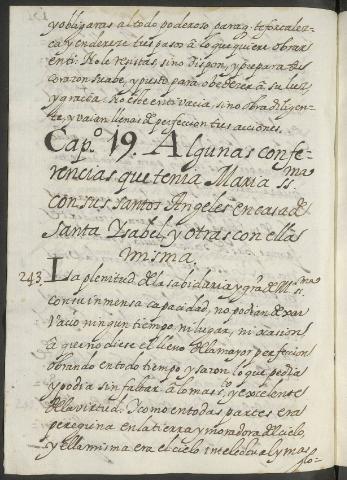 y obligaras al todo poderoso para q̃. te fortalez-
ca, y enderece tus pasos à lo que quiere obrar
en ti. No le resistas, sino dispon, y prepara tu
corazon suabe, y presto para obedecer à su luz,
y gracia. No este en ti vacia, sino obra diligen-
te, y vaian llenas de perfeccion tus acciones.
Cap.º 19. Algunas confe-
rencias, que tenia Maria SS.ma
con sus santos Angeles en casa de
Santa Ysabel, y otras con ella
misma.
243. La plenitud de la sabiduria y gr.a de M. SS.ma
con su inmensa capacidad, no podian dexar
vacio ningun tiempo, ni lugar, ni ocasion
à que no diese el lleno de la mayor perfeccion
obrando en todo tiempo y sazon lo que pedia
y podia sin faltar à lo mas s.to y excelente
de la virtud. Y como en todas partes era
peregrina en la tierra y moradora del cielo,
y ella misma era el cielo intelectual y mas
glo-